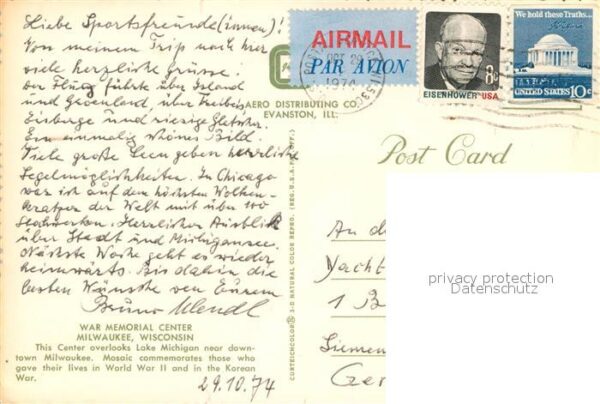 Liebe Sportsfreunde(innen)!
Von meinem Trip nach hier
viele herzliche Grüsse.
Der Flug führte über Island
und Groenland, über Treibeis
Eisberge und riesige Gletscher.
Ein einmalig schönes Bild.
Viele große Seen geben herrliche
Segelmöglichkeiten. In Chicago
war ich auf dem höchsten Wolken-
kratzer der Welt mit über 100
Stockwerken. Herrlicher Ausblick
über Stadt und Michigansee.
Nächste Woche geht es wieder
heimwärts. Bis dahin die
besten Wünsche von Eurem
Bruno
WAR MEMORIAL CENTER
MILWAUKEE, WISCONSIN
This Center overlooks Lake Michigan near down-
town Milwaukee. Mosaic commemorates those who
gave their lives in World War II and in the Korean
War.
29.10.74
AERO DISTRIBUTING CO.
EVANSTON, ILL.
CURTEICHCOLOR 3-D NATURAL COLOR REPRO. (REG. U.S.A. PAT. OFF.)
AIRMAIL
PAR AVION
OCT 29
1974
8c
EISENHOWER·USA
We hold these Truths...
UNITED STATES 10c
Post Card
An d
Yacht
1 B
Siemens
Ger
privacy protection
Datenschutz